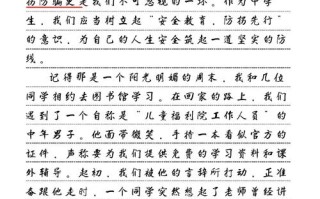 拐防骗更是我们不可忽视的一环。作为中学
生，我们应当树立起“安全教育，防拐先行”
的意识，为自己的人生安全筑起一道坚实的防
线。
记得那是一个阳光明媚的周末，我和几位
同学相约去图书馆学习。在回家的路上，我们
遇到了一个自称是“儿童福利院工作人员”的
中年男子。他面带微笑，手持一本看似官方的
证件，声称要为我们提供免费的学习资料和课
外辅导。起初，我们被他的言辞所打动，正准
备跟他走时，一个同学突然想起了老师曾经讲